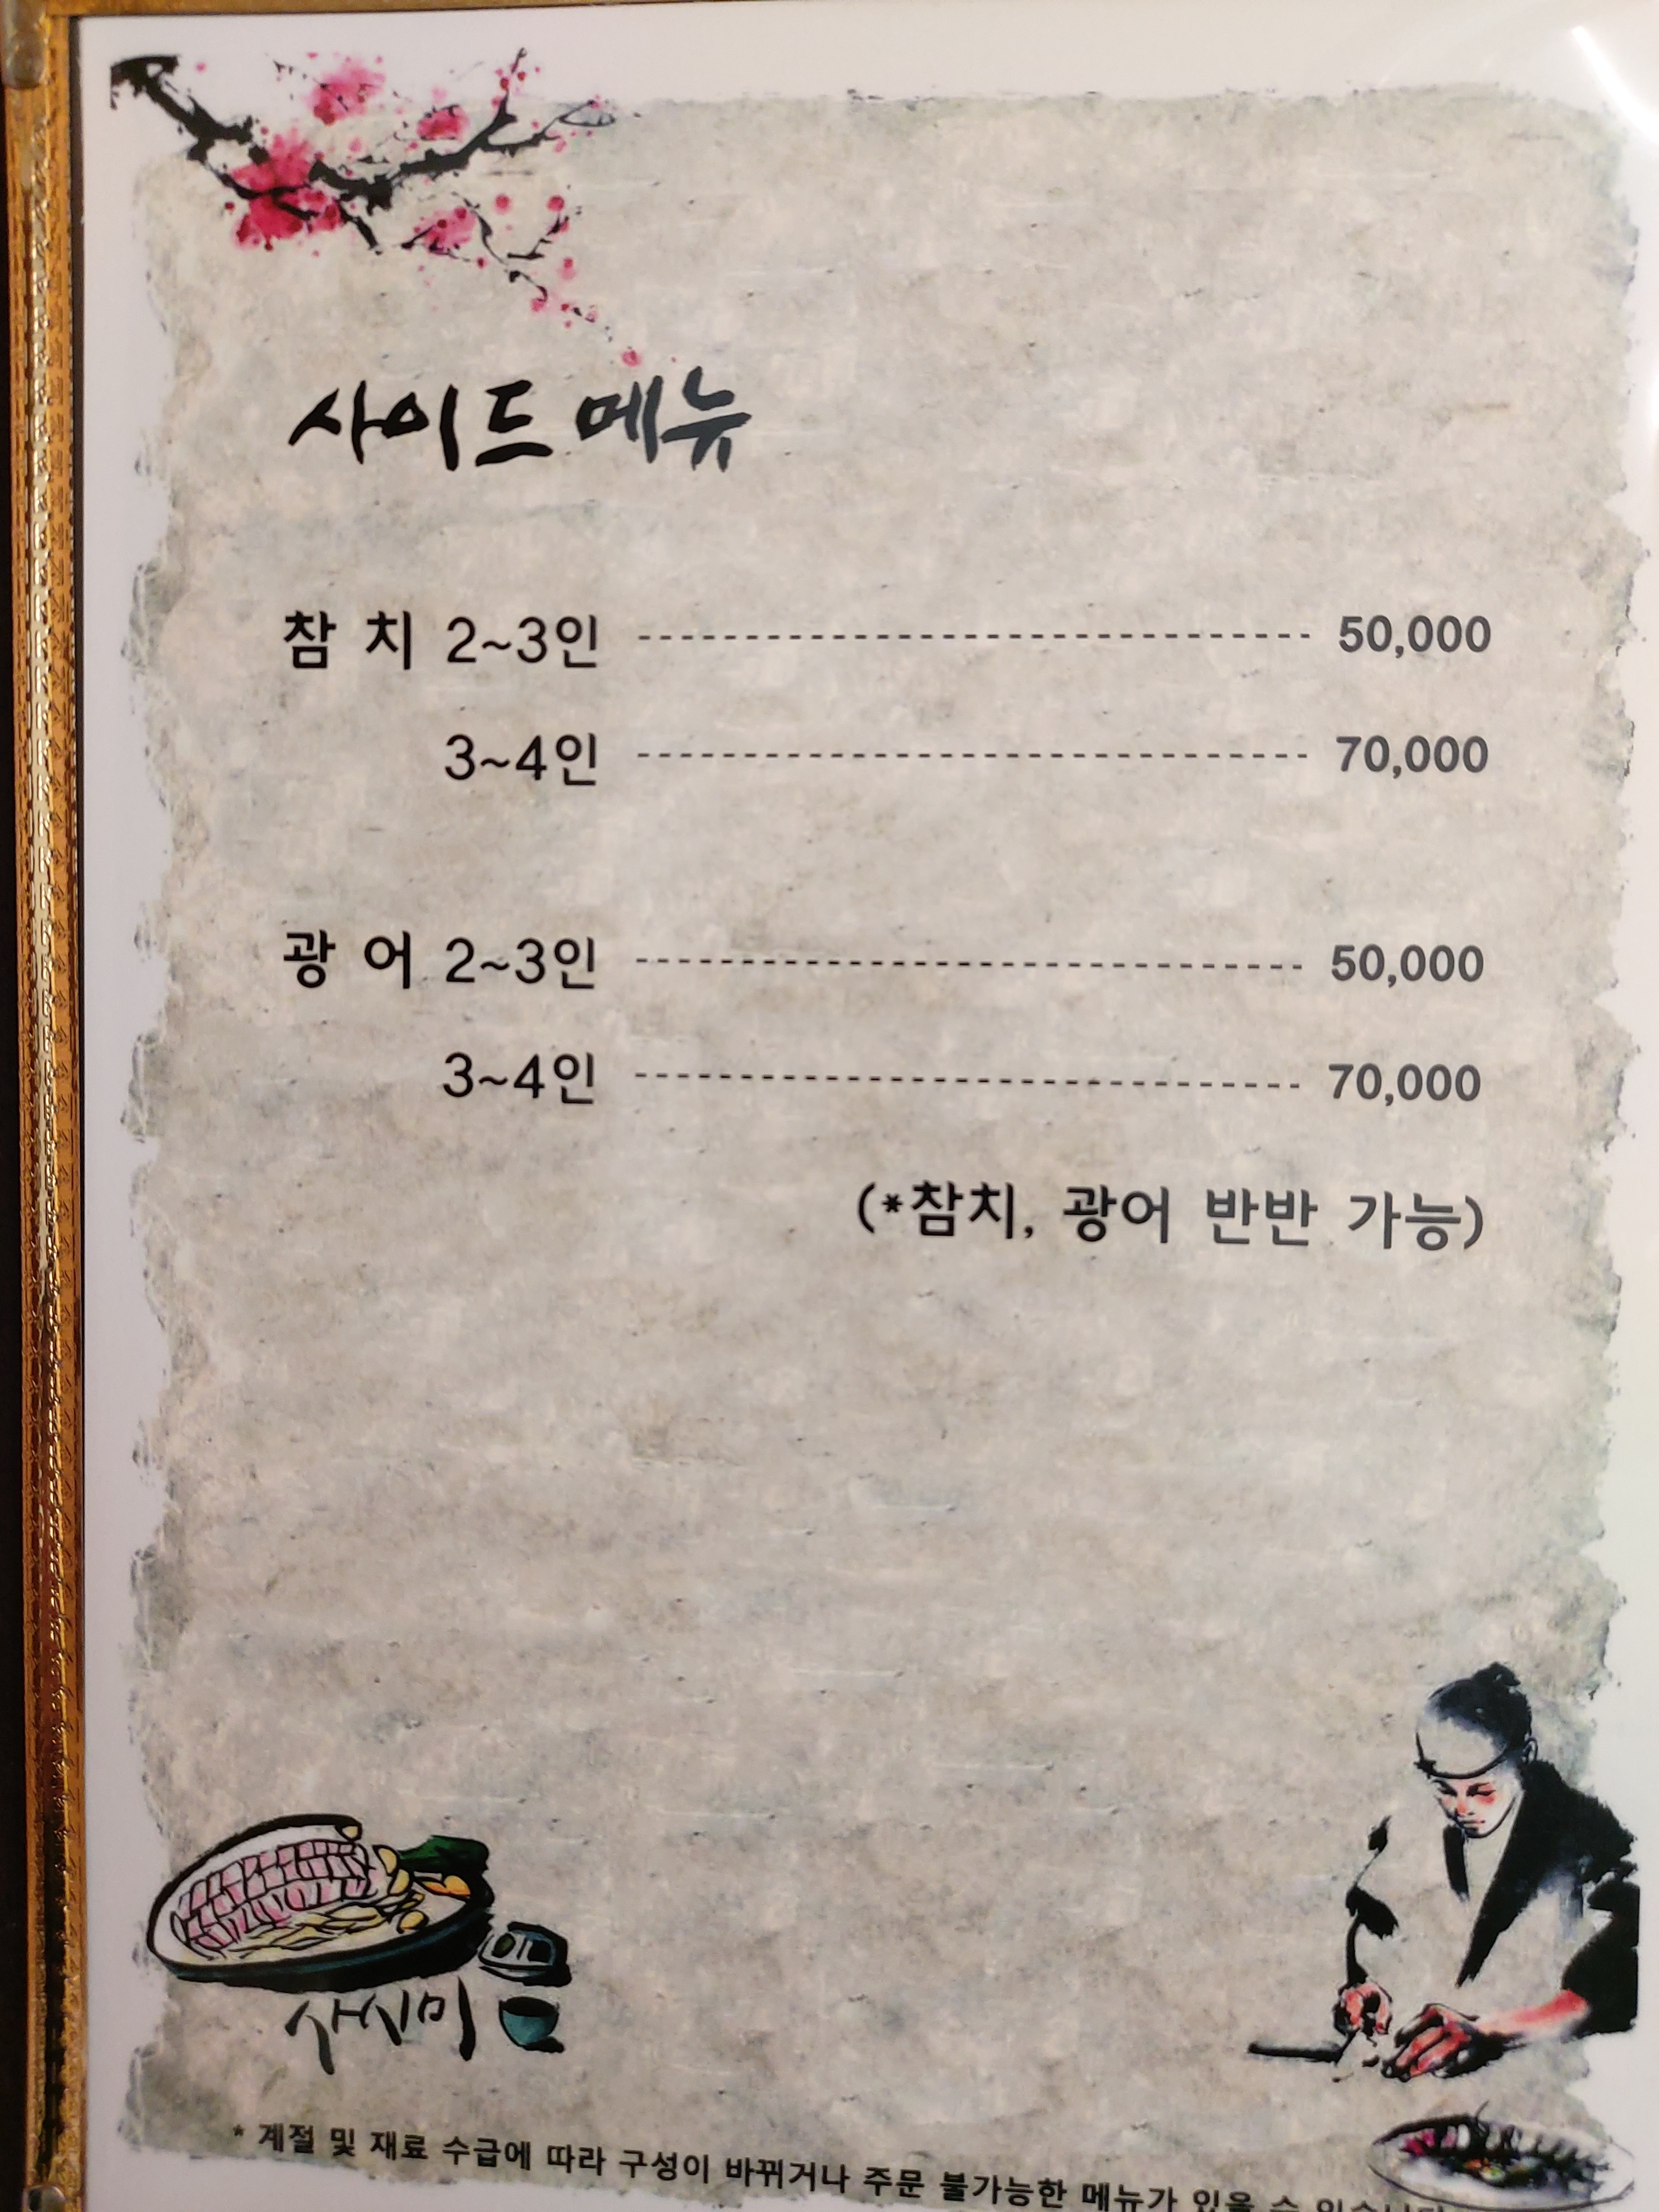 사이드 메뉴
참 치 2~3인 ------------------------------ 50,000
3~4인 ------------------------------ 70,000
광 어 2~3인 ------------------------------ 50,000
3~4인 ------------------------------ 70,000
(*참치, 광어 반반 가능)
사시미
* 계절 및 재료 수급에 따라 구성이 바뀌거나 주문 불가능한 메뉴가 있을 수 있습니다